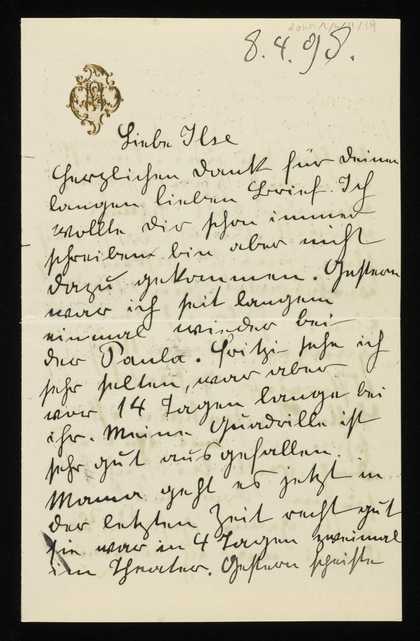 8.4.98.
Liebe Ilse
Herzlichen Dank für Deinen
langen lieben Brief. Ich
wollte Dir schon immer
schreiben bin aber nicht
dazu gekommen. Gestern
war ich seit langem
einmal wieder bei
der Paula. Fritzi sehe ich
sehr selten, war aber
vor 14 Tagen lange bei
ihr. Meine Quadrille ist
sehr gut ausgefallen.
Mama geht es jetzt in
der letzten Zeit recht gut
sie war in 4 Tagen zweimal
im Theater. Gestern